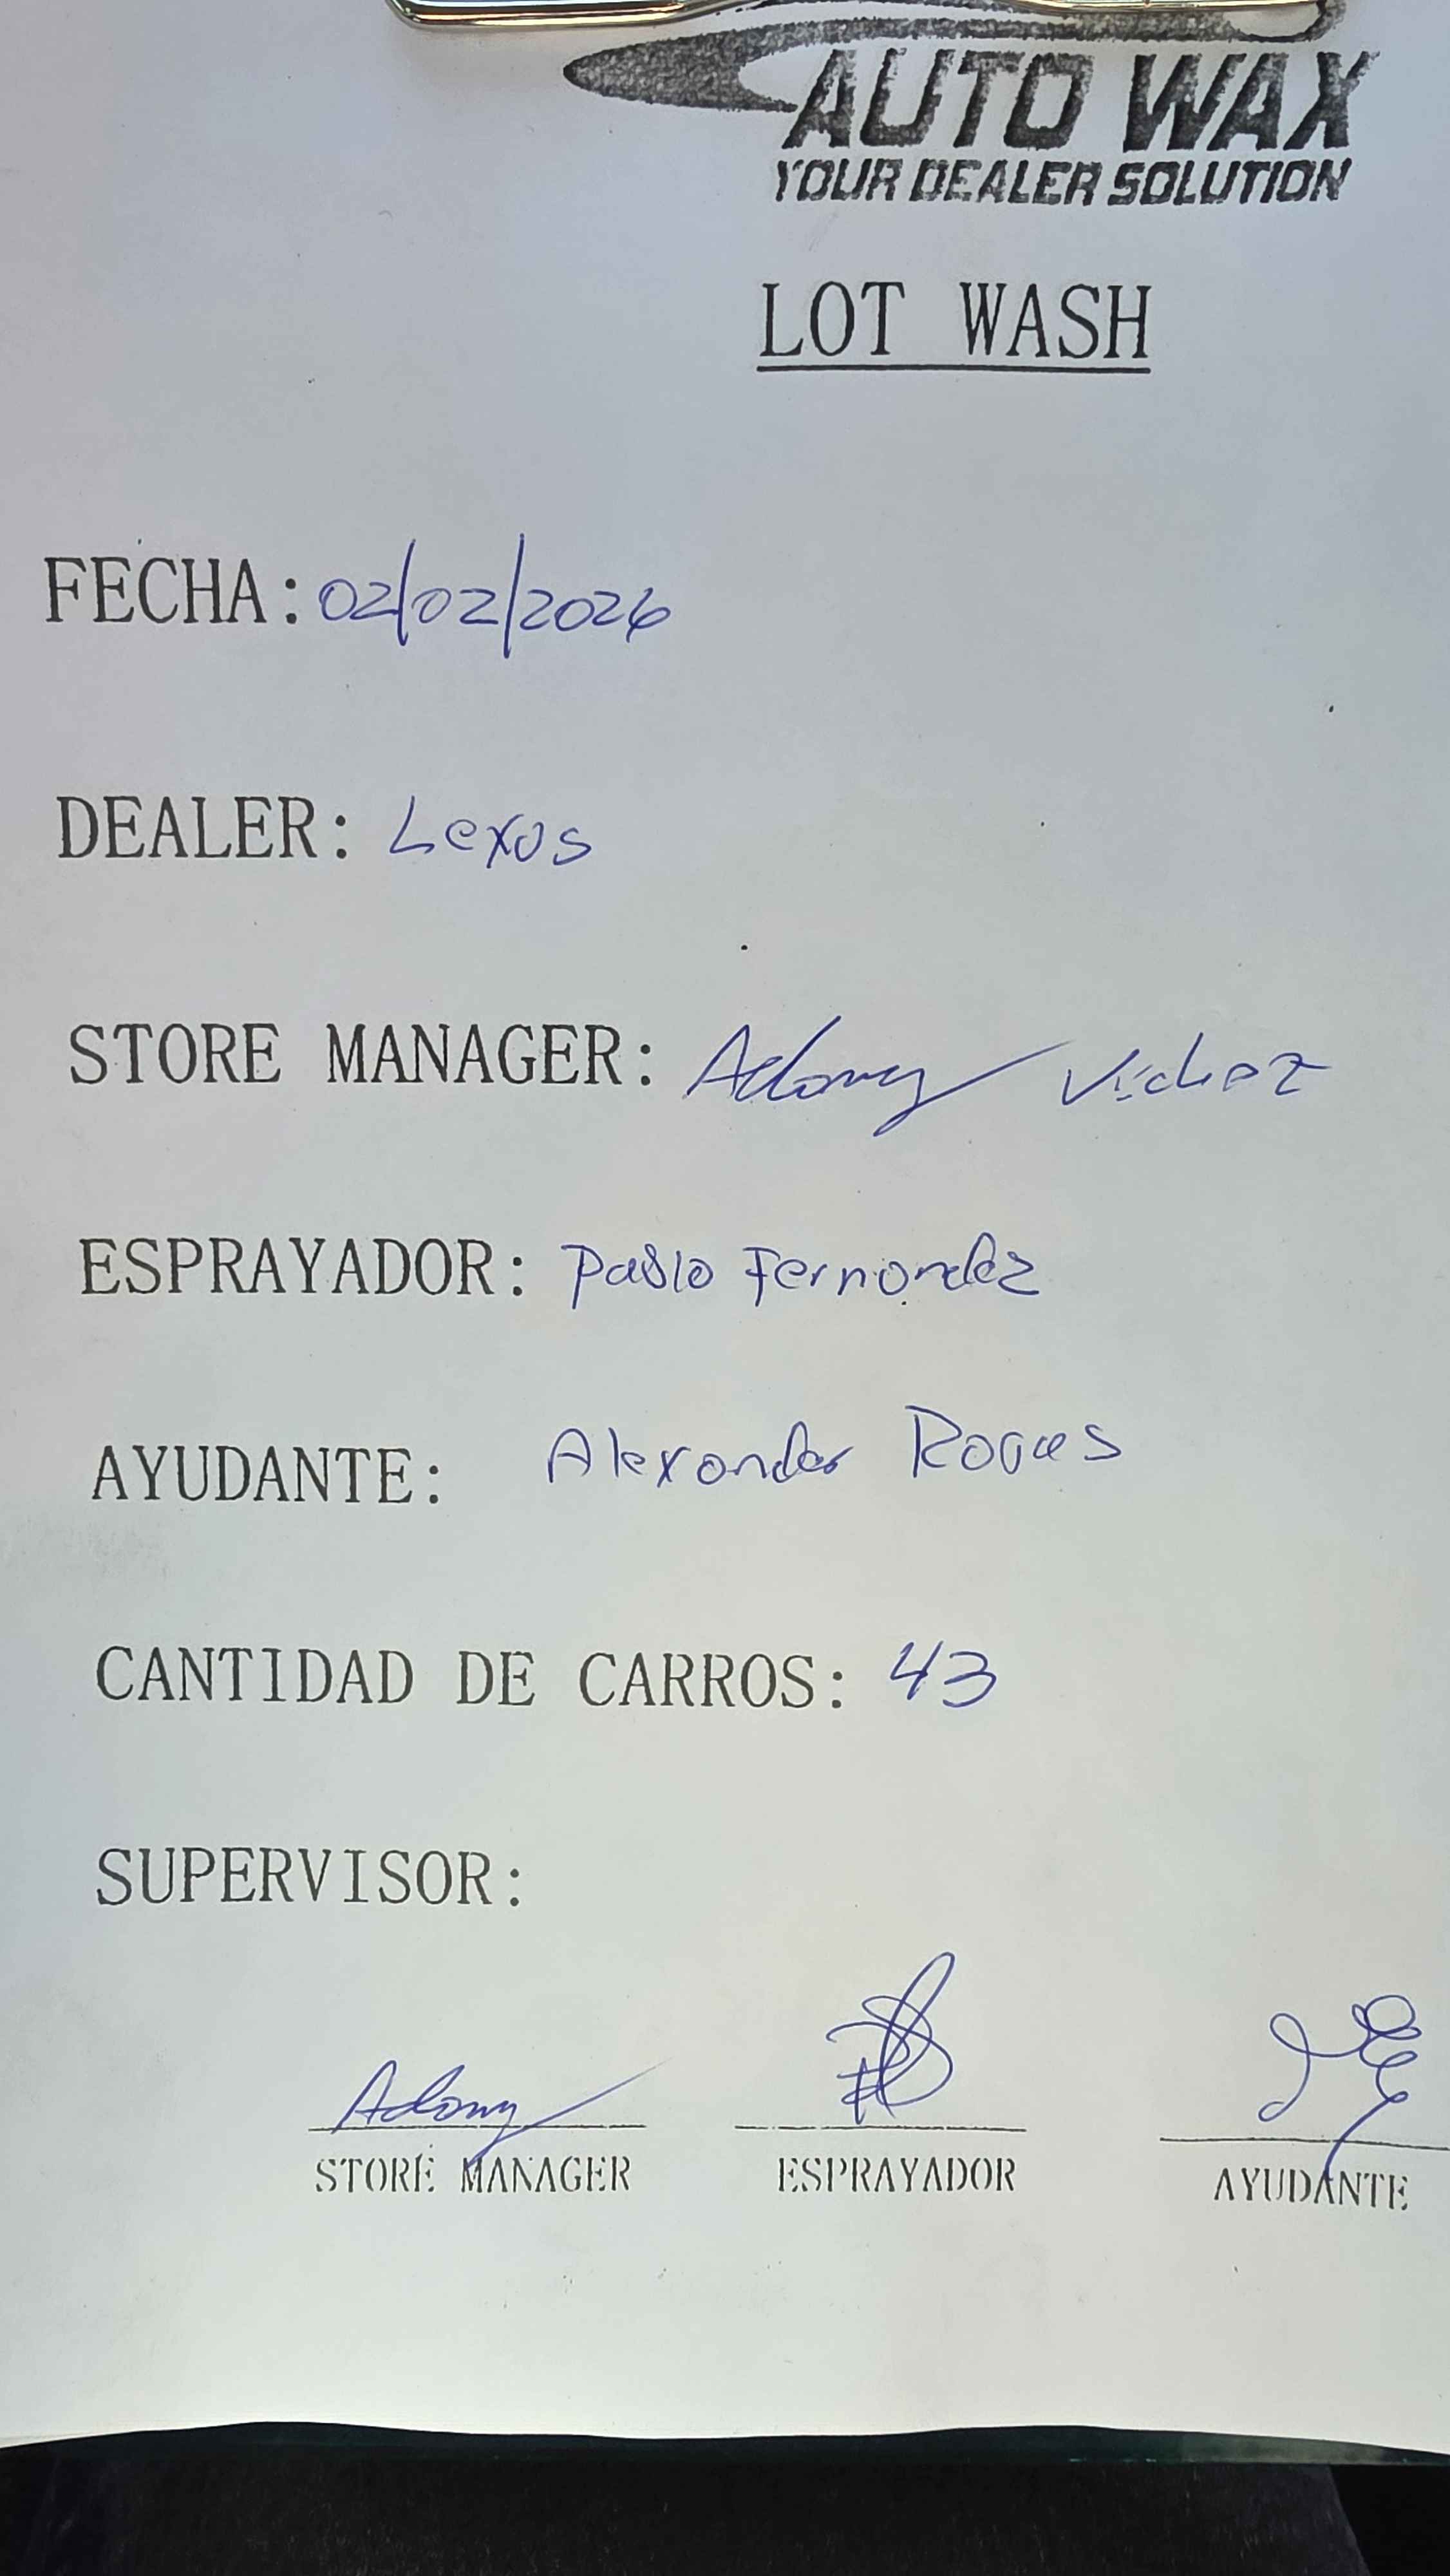 AUTO WAX
YOUR DEALER SOLUTION
LOT WASH
FECHA: 02/02/2026
DEALER: Lexus
STORE MANAGER: Adony
ESPRAYADOR: Pablo Fernandez
AYUDANTE: Alexander
CANTIDAD DE CARROS: 43
SUPERVISOR:
Adony
STORE MANAGER ESPRAYADOR AYUDANTE